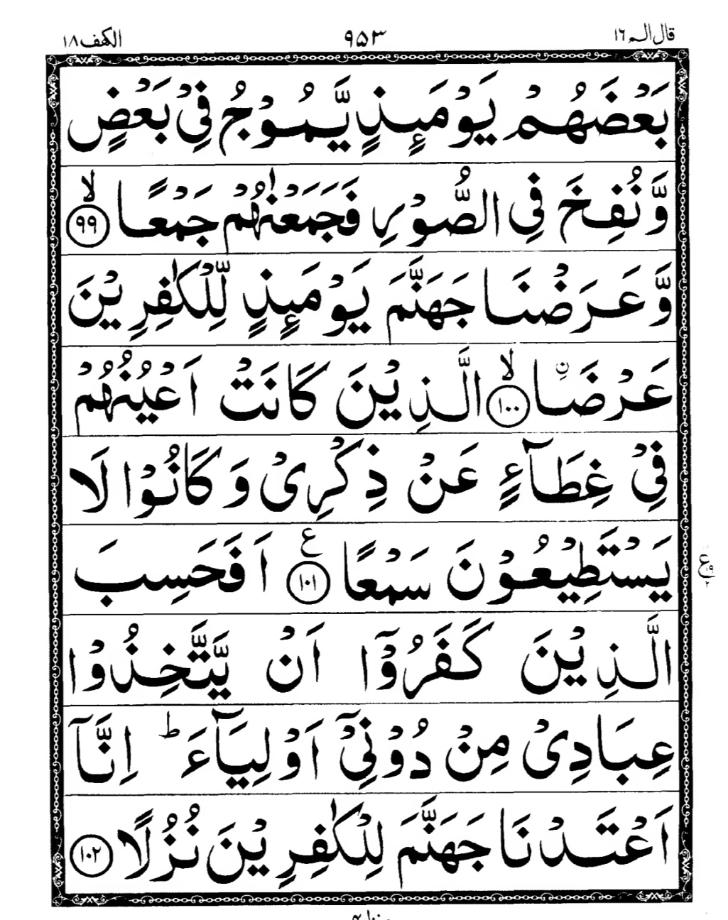 قال الم ١٦ ٩٥٣ الكهف ١٨
بَعۡضَهُمۡ يَوۡمَئِذٍ يَّمُوۡجُ فِىۡ بَعۡضٍ
وَّنُفِخَ فِى الصُّوۡرِ فَجَمَعۡنٰهُمۡ جَمۡعًا ۙ‏﴿۹۹﴾
وَّعَرَضۡنَا جَهَنَّمَ يَوۡمَئِذٍ لِّلۡكٰفِرِيۡنَ
عَرۡضَاۨ ۙ‏﴿۱۰۰﴾ الَّذِيۡنَ كَانَتۡ اَعۡيُنُهُمۡ
فِىۡ غِطَآءٍ عَنۡ ذِكۡرِىۡ وَكَانُوۡا لَا
يَسۡتَطِيۡعُوۡنَ سَمۡعًا ‏﴿۱۰۱﴾ ع اَفَحَسِبَ
الَّذِيۡنَ كَفَرُوۡۤا اَنۡ يَّتَّخِذُوۡا
عِبَادِىۡ مِنۡ دُوۡنِىۡۤ اَوۡلِيَآءَ‌ ؕ اِنَّاۤ
اَعۡتَدۡنَا جَهَنَّمَ لِلۡكٰفِرِيۡنَ نُزُلًا ‏﴿۱۰۲﴾